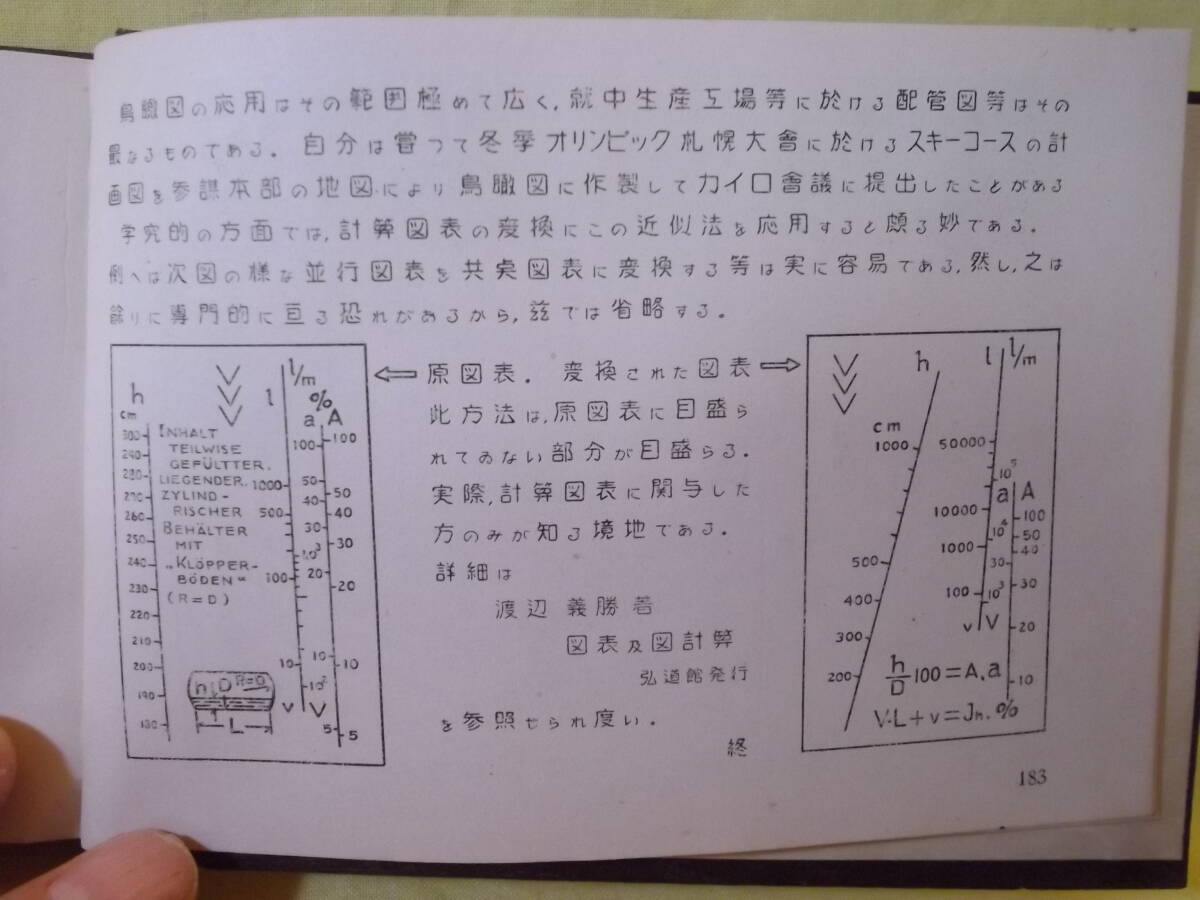 鳥瞰図の応用はその範囲極めて広く,就中生産工場等に於ける配管図等はその
最なるものである. 自分は嘗つて冬季オリンピック札幌大會に於けるスキーコースの計
画図を参謀本部の地図により鳥瞰図に作製してカイロ會議に提出したことがある
学究的の方面では,計算図表の変換にこの近似法を応用すると頗る妙である.
例へは次図の様な並行図表を共奌図表に変換する等は実に容易である,然し,之は
餘りに専門的に亘る恐れがあるから,茲では省略する.
⇐原図表. 変換された図表⇒
此方法は,原図表に目盛ら
れてゐない部分が目盛らる.
実際,計算図表に関与した
方のみが知る境地である.
詳細は
渡辺 義勝著
図表及図計算
弘道館発行
を参照せられ度い.
終
h
cm
300
290
280
270
260
250
240
230
220
210
200
190
180
INHALT
TEILWISE
GEFÜLTTER.
LIEGENDER.
ZYLIND-
RISCHER
BEHÄLTER
MIT
„KLÖPPER-
BÖDEN"
(R=D)
h D R=D
L
l
1000
500
100
10
v
l/m
%
a A
100
50
40
30
10³
20
10
10²
V
5
100
50
40
30
20
10
5
h
cm
1000
500
400
300
200
l
50000
10000
1000
100
v
l/m
10⁵
a A
10⁴
30
10³
V
100
50
40
30
20
10
h/D 100=A,a
V·L+v=Jn.%
183